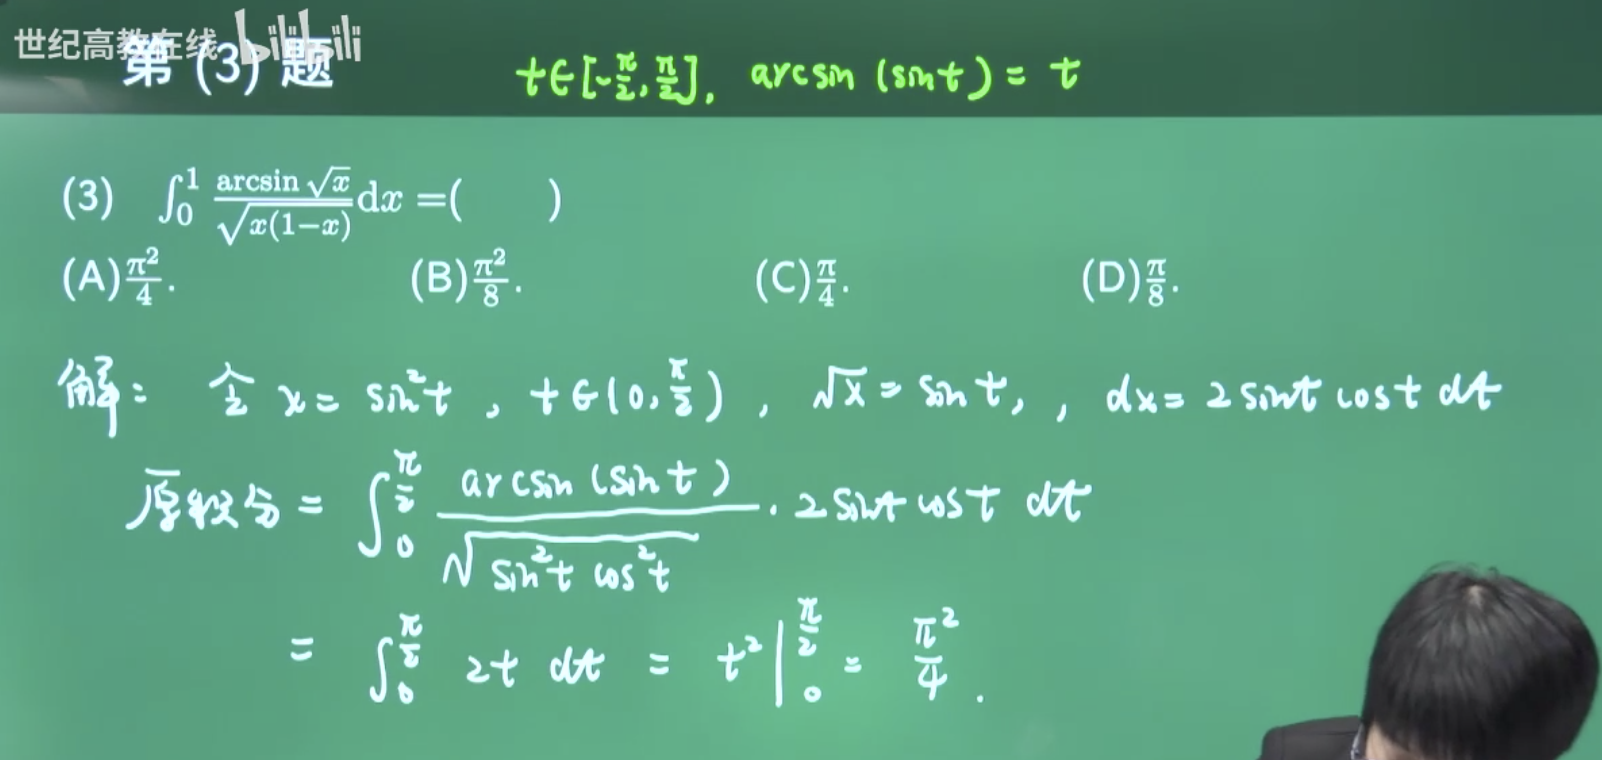 世纪高教在线 bilibili
第(3)题
t∈[-π/2, π/2], arcsin(sint) = t
(3) ∫₀¹ arcsin √x / √(x(1−x)) dx =(    )
(A) π²/4. (B) π²/8. (C) π/4. (D) π/8.
解: 令 x = sin²t, t∈(0, π/2), √x = sint, , dx = 2 sint cost dt
原积分 = ∫₀^(π/2) arcsin(sint) / √(sin²t cos²t) · 2 sint cost dt
= ∫₀^(π/2) 2t dt = t² |₀^(π/2) = π²/4.